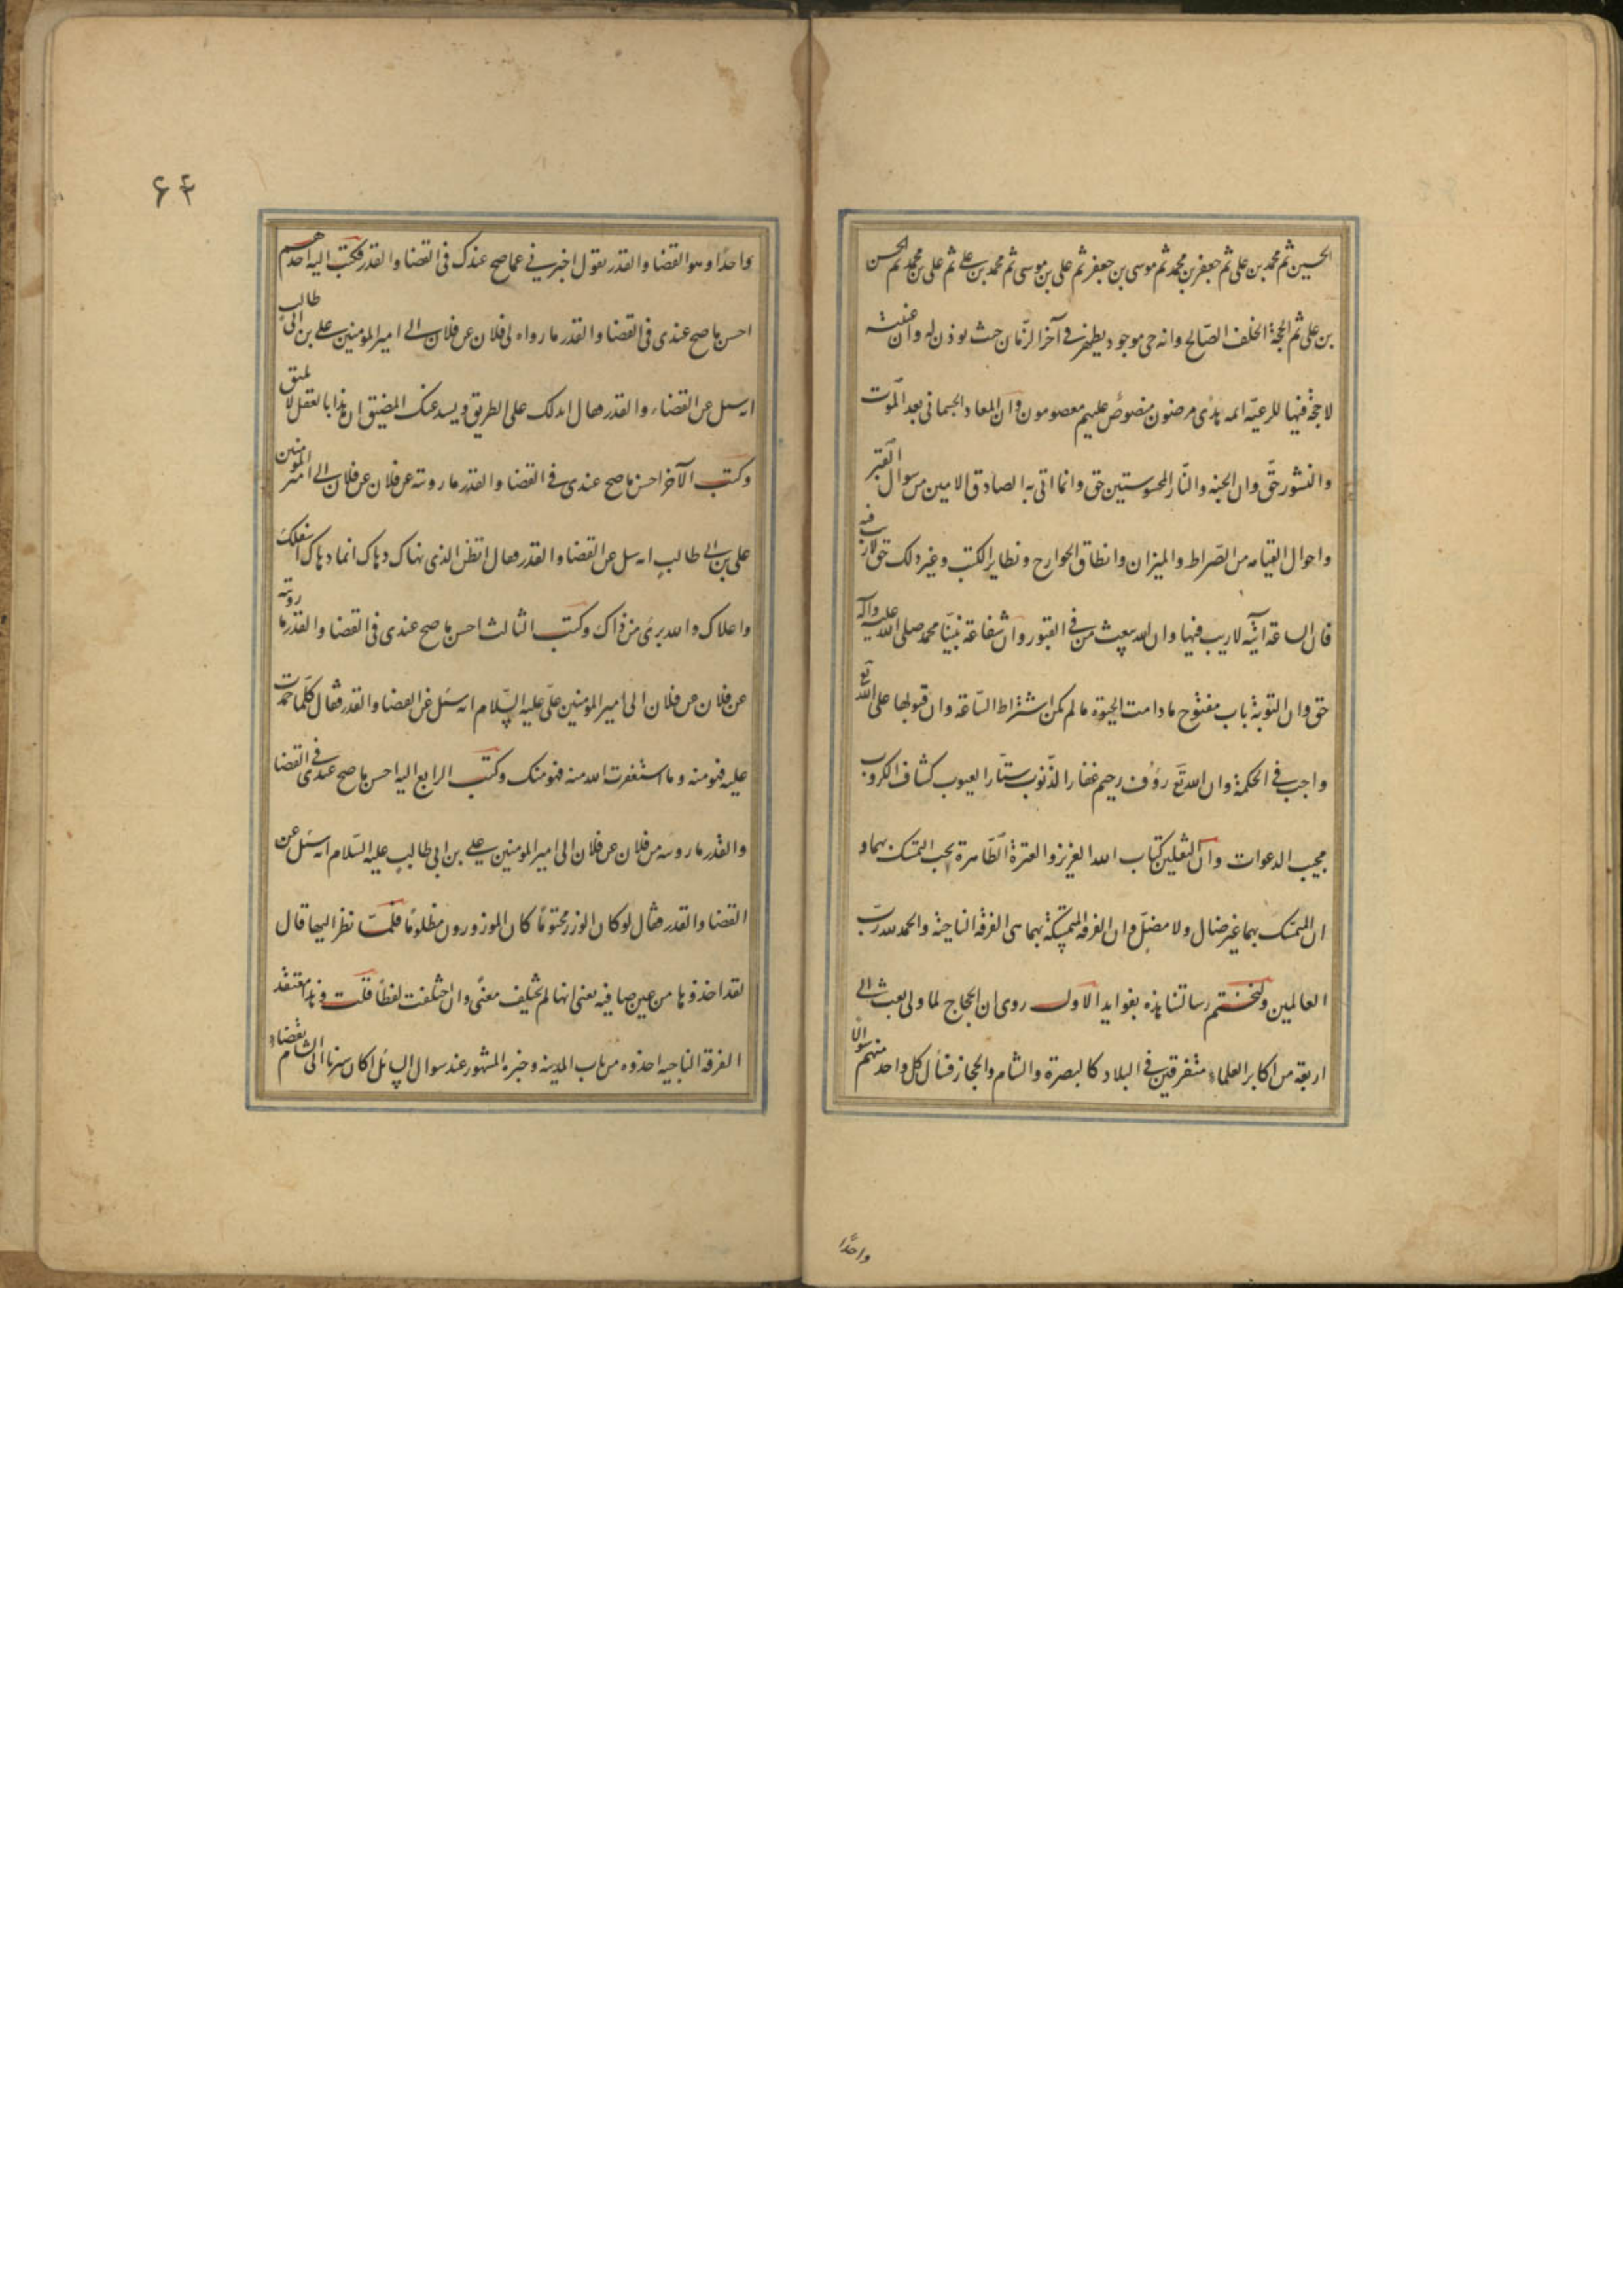 الحسين ثم محمد بن على ثم جعفر بن محمد ثم موسى بن جعفر ثم على بن موسى ثم محمد بن على ثم على بن محمد ثم الحسن
بن على ثم الحجة الخلف الصّالح وانه حى موجود يظهر فى آخر الزّمان حيث يوذن له وان غيبته
لا حجة فيها للرعيّه ائمه هدى مرضيون منصوص عليهم معصومون وان المعاد الجسمانى بعد الموت
والنشور حق وان الجنه والنّار المحسوستين حق وانما اتى به الصادق الامين من سوال القبر
واحوال القيامه من الصّراط والميزان وانطاق الجوارح وتطاير الكتب وغير ذلك حق لاريب فيه
فان الساعة اتيه لاريب فيها وان الله يبعث من فى القبور وان شفاعة نبيّنا محمد صلى الله عليه وآله
حق وان التوبة باب مفتوح مادامت الحيوة ما لم يكن اشتراط السّاعة وان قبولها على الله تع
واجب فى الحكمة وان الله تع رؤف رحيم غفار الذّنوب ستّار العيوب كشاف الكروب
مجيب الدعوات وان الثقلين كتاب الله العزيز والعترة الطّاهرة يجب التمسك بهما و
ان المتمسك بهما غير ضال ولا مضلّ وان الفرقه المتمسّكة بهما هى الفرقة الناجية والحمد لله ربّ
العالمين ولنختتم رسالتنا هذه بفوايد الاول روى ان الحجاج لما ولى بعث الى
اربعة من اكابر العلماء متفرقين فى البلاد كالبصرة والشام والحجاز فسأل كل واحد منهم سوالا
واحدًا
۶۴
واحدًا وهو القضا والقدر يقول اخبرنى عما صح عندك فى القضا والقدر فكتب اليه احدهم
احسن ما صح عندى فى القضا والقدر ما رواه لى فلان عن فلان الى امير المؤمنين على بن ابى طالب
انه سئل عن القضاء والقدر فقال ايدلك على الطريق ويسد عنك المضيق ان هذا بالعقل لا يليق
وكتب الآخر احسن ما صح عندى فى القضا والقدر ما رويته عن فلان عن فلان الى امير المؤمنين
على بن ابى طالب انه سئل عن القضا والقدر فقال اتظن الذى نهاك دهاك انما دهاك اسفلك
واعلاك والله برئ من ذاك وكتب الثالث احسن ما صح عندى فى القضا والقدر ما رويته
عن فلان عن فلان الى امير المؤمنين على عليه السّلام انه سئل عن القضا والقدر فقال كلّما حمدت
عليه فهو منه وما استغفرت الله منه فهو منك وكتب الرابع اليه احسن ما صح عندى فى القضا
والقدر ما رويته من فلان عن فلان الى امير المؤمنين على بن ابى طالب عليه السّلام انه سئل عن
القضا والقدر فقال لو كان الوزر محتومًا كان الموزور مظلومًا فلمّا نظر اليها قال
لقد اخذوها من عين صافيه يعنى انها لم يختلف معنىً وان اختلفت لفظًا قلت وهذا معتقد
الفرقة الناجيه اخذوه من باب المدينه وخبره المشهور عند سوال السائل اكان سيرنا الى الشام بقضاء